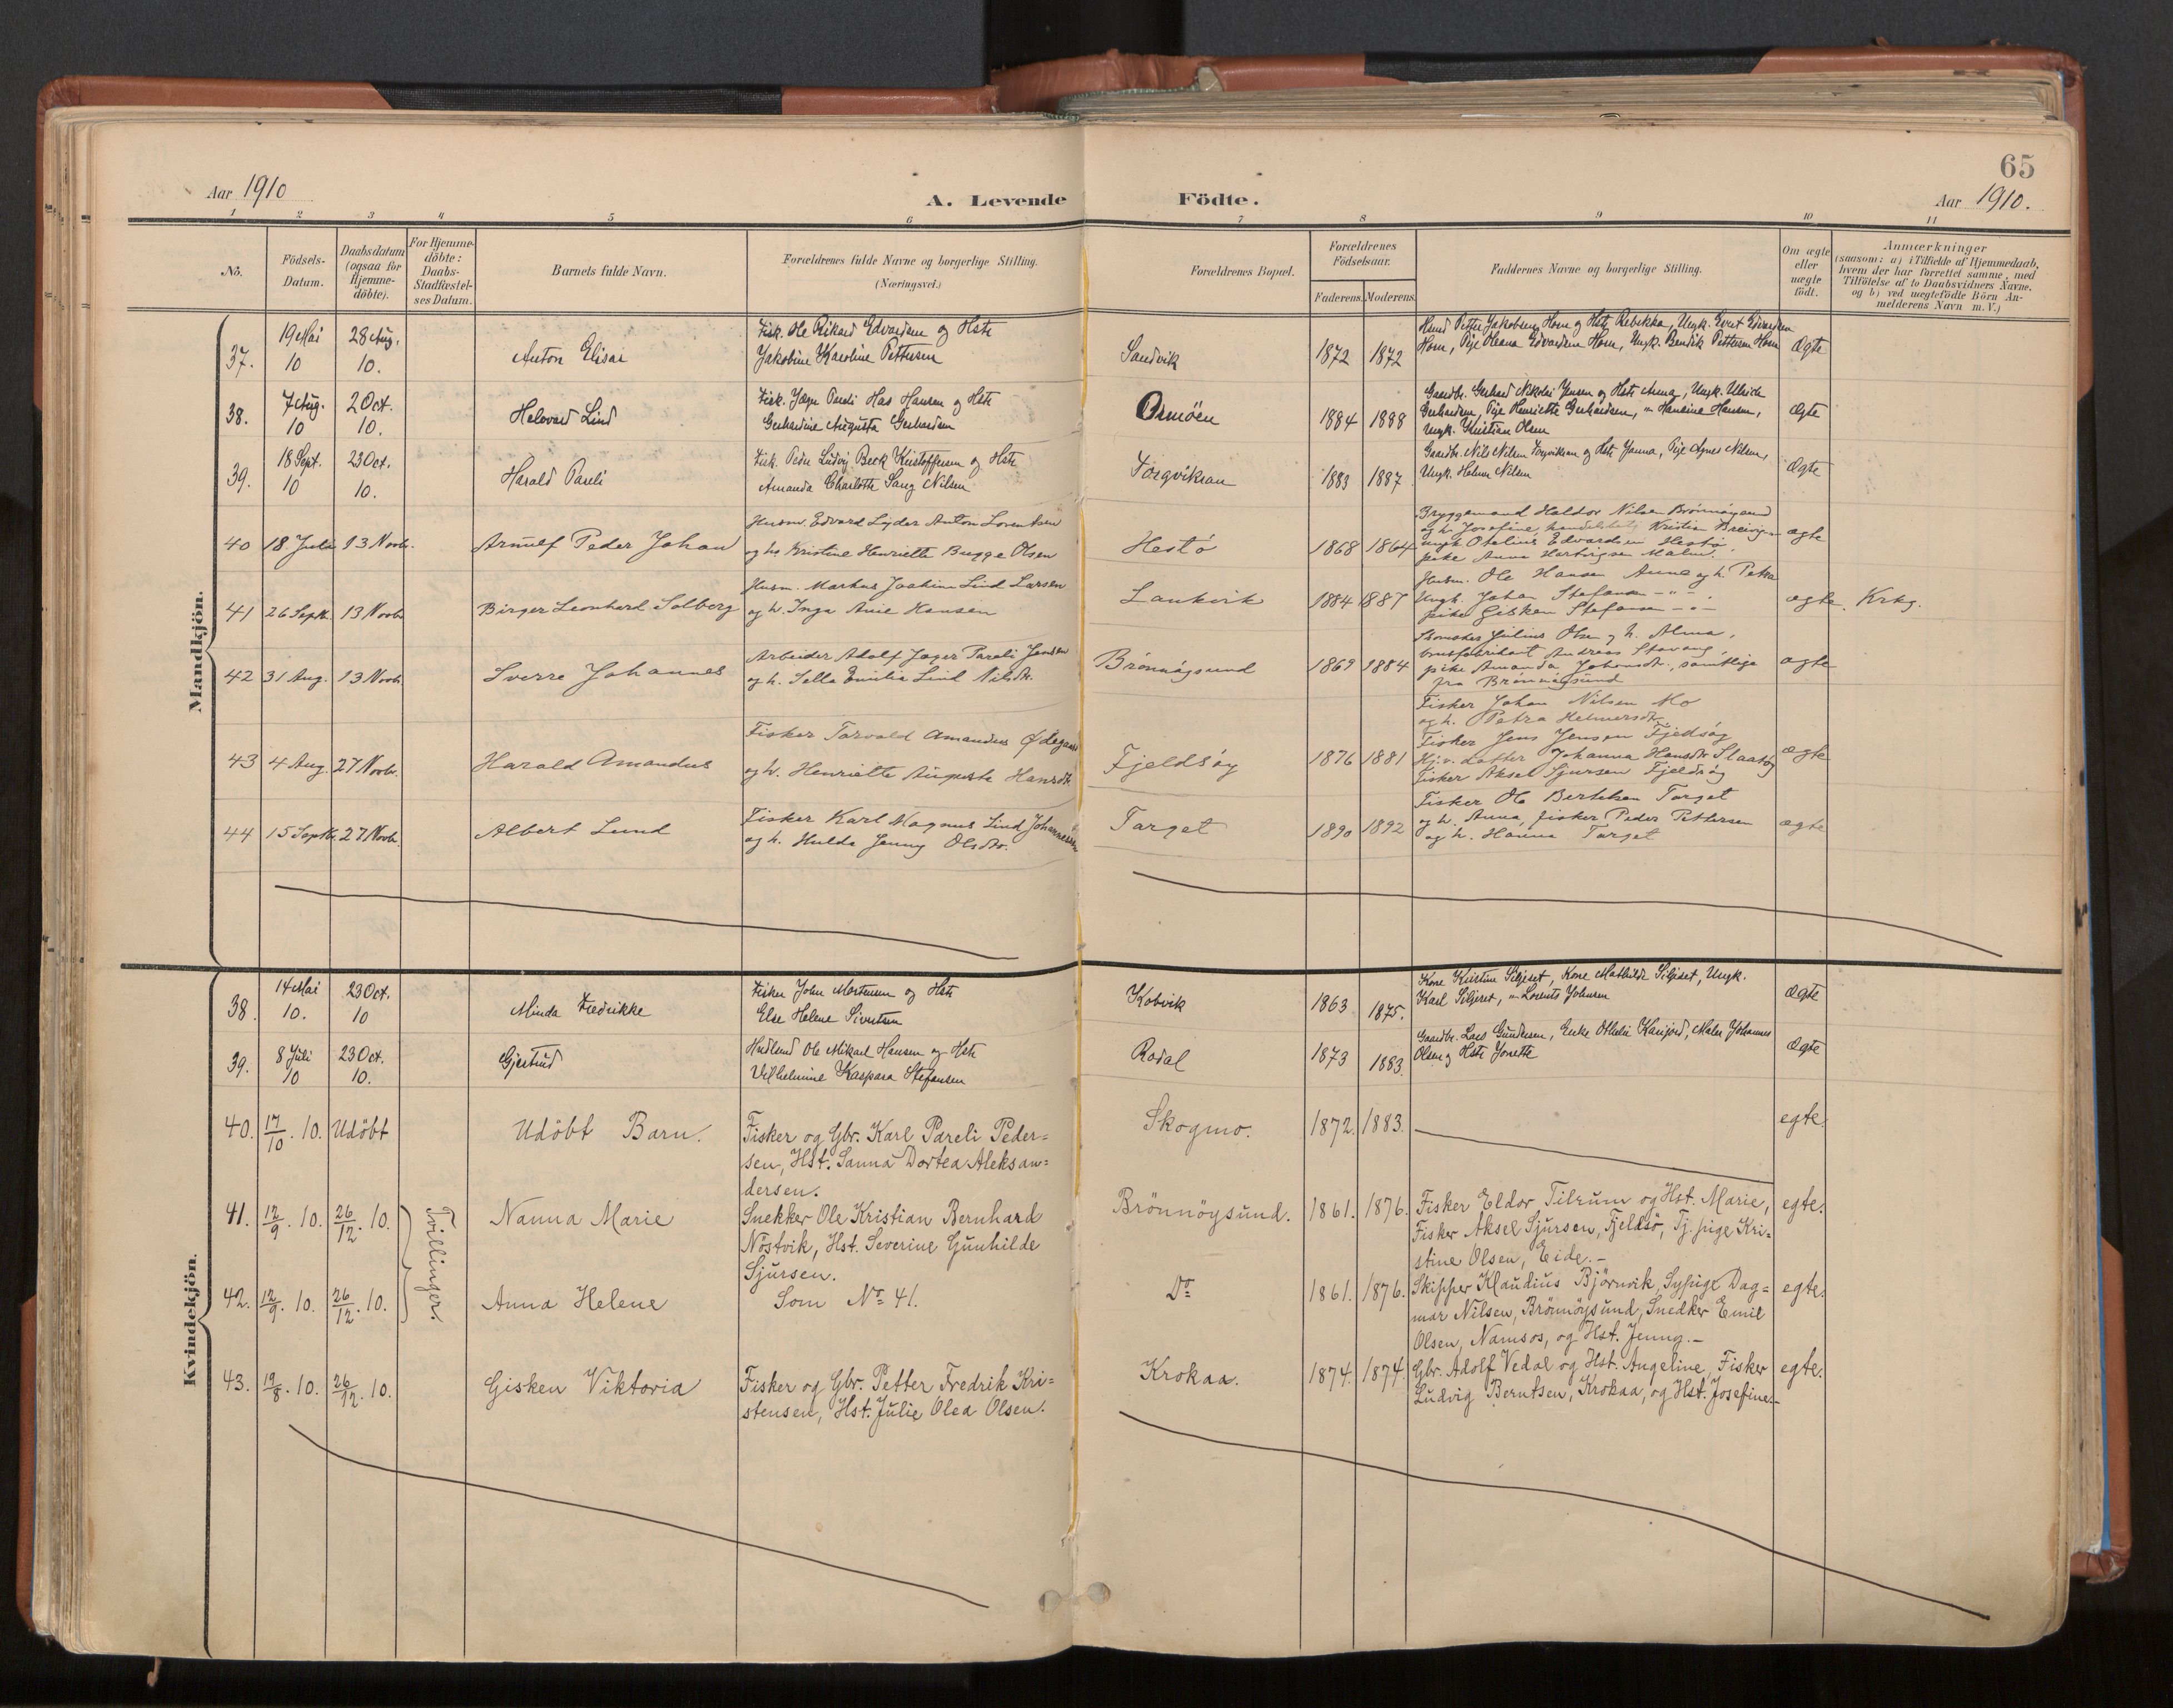 65
Aar 1910
A. Levende Födte.
Aar 1910.
1 2 3 4 5 6 7 8 9 10 11
No.
Födsels-Datum.
Daabsdatum (ogsaa for Hjemme-döbte).
For Hjemme-döbte: Daabs-Stadfæstel-ses Datum.
Barnets fulde Navn.
Forældrenes fulde Navne og borgerlige Stilling.
(Næringsvei.)
Forældrenes Bopæl.
Forældrenes Födselsaar.
Faderens. Moderens.
Faddernes Navne og borgerlige Stilling.
Om ægte eller uægte födt.
Anmærkninger
(saasom: a) i Tilfælde af Hjemmedaab,
hvem der har forrettet samme, med
Tilföielse af to Daabsvidners Navne,
og b) ved uægtefödte Börn An-
melderens Navn m. V.)
Mandkjön.
37. 19 Mai 10 28 Aug. 10. Anton Elisai
Fisk. Ole Rikard Edvardsen og Hstr
Jakobine Karoline Pettersen
Sandvik 1872 1872
Hmd Petter Jakobsen Horn og Hstr Rebekka, Ungk. Evert Edvardsen
Horn, Pige Oleana Edvardsen Horn, Ungk. Bendik Pettersen Horn
Ægte
38. 7 Aug. 10 2 Oct. 10. Halvard Lind
Fisk. Jæger Pareli Has Hansen og Hstr
Gerhardine Augusta Gerhardsen
Osmöen 1884 1888
Gaardbr. Gerhard Nikolai Jensen og Hstr Anna, Ungk. Ulrich
Gerhardsen, Pige Henriette Gerhardsen, " Hansine Hansen,
Ungk. Kristian Olsen
Ægte
39. 18 Sept. 10 23 Oct. 10. Harald Pareli
Fisk. Peder Ludvig Beck Kristoffersen og Hstr
Amanda Charlotte Sang Nilsen
Torgviksan 1883 1887
Gaardbr. Nils Nilsen Torgviksan og Hstr Janna, Pige Agnes Nilsen,
Ungk. Helmer Nilsen
Ægte
40 18. Juli 13 Novb. Arnulf Peder Johan
Husm. Edvard Lyder Anton Lorentsen
og h. Kristine Henriette Bugge Olsen
Hestö 1868 1864
Bryggemand Haldor Nilsen Brönnöysund
og h. Josefine, handelsbetj. Kristian Breivig
ungk. Otelius Edvardsen Hestö
pike Anna Hartvigsen Malm.
ægte
41 26 Septb. 13 Novb. Birger Leonhard Solberg
Husm. Markus Joakim Lind Larsen
og h. Inga Anie Hansen
Lankvik 1884 1887
Husm. Ole Hansen og h. Petra
Ungk. Johan Stefansen - " -
pike Gisken Stefansen - " -
ægte. Krkg.
42 31 Aug. 13 Novb. Sverre Johannes
Arbeider Adolf Jager Pareli Jensen
og h. Sella Emilie Lind Nilsdtr.
Brönnöysund 1869 1884
Skomaker Julius Olsen og h. Alma,
brusfabrikant Andreas Stavang,
pike Amanda Johansdtr., samtlige
fra Brönnöysund
ægte
43 4 Aug. 27 Novb. Harald Amandus
Fisker Torvald Amandus Ødegaard
og h. Henriette Auguste Hansdtr.
Fjeldsöy 1876 1881
Fisker Johan Nilsen Mo
og h. Petra Helmersdtr.
Fisker Jens Jensen Fjeldsöy
Hj.v. datter Johanna Hansdtr. Slaatöy
Fisker Aksel Sjursen Fjeldsöy
ægte
44 15 Septb. 27 Novb. Albert Lund
Fisker Karl Magnus Lind Johannessen
og h. Hulda Jenny Olsdtr.
Torget 1890 1892
Fisker Ole Bertelsen Torget
og h. Anna, fisker Peder Pettersen
og h. Hanna Torget
ægte
Kvindekjön.
38. 14 Mai 10. 23 Oct. 10 Minda Fredrikke
Fisker John Mortensen og Hstr
Else Helene Sivertsen
Kobvik 1863 1875.
Kone Kristine Siljeset, Kone Mathilde Siljeset, Ungk.
Karl Siljeset, " Lorents Johnsen
Ægte
39. 8 Juli 10 23 Oct. 10. Gjertrud
Husmd Ole Mikael Hansen og Hstr
Vilhelmine Kaspara Stefansen
Rodal 1873 1883.
Gaardbr. Lars Gundersen, Enke Othelie Karijord, Maler Johannes
Olsen og Hstr Jonette
Ægte
40. 17/10. 10. Udöbt Udöbt Barn.
Fisker og Gbr. Karl Pareli Peder=
sen, Hst. Sanna Dortea Aleksan=
dersen.
Skogmo. 1872. 1883. egte.
41. 12/9. 10. 26/12. 10. Tvillinger. Nanna Marie
Snekker Ole Kristian Bernhard
Nöstvik, Hst. Severine Gunhilde
Sjursen.
Brönnöysund. 1861. 1876.
Fisker Eldor Tilrum og Hst. Marie,
Fisker Aksel Sjursen, Fjeldsö, Tj. pige Kri=
stine Olsen, Eide.-
egte.
42. 12/9. 10. 26/12. 10. Anna Helene
Som No 41.
Do 1861. 1876.
Skipper Klaudius Björnvik, Sypige Dag=
mar Nilsen, Brönnöysund, Snedker Emil
Olsen, Namsos, og Hst. Jenny.-
egte.
43. 19/8. 10. 26/12. 10. Gisken Viktoria
Fisker og Gbr. Petter Fredrik Kri=
stensen, Hst. Julie Olea Olsen.
Krokaa. 1874. 1874.
Gbr. Adolf Vedal og Hst. Angeline, Fisker
Ludvig Berntsen, Krokaa, og Hst. Josefine.-
egte.